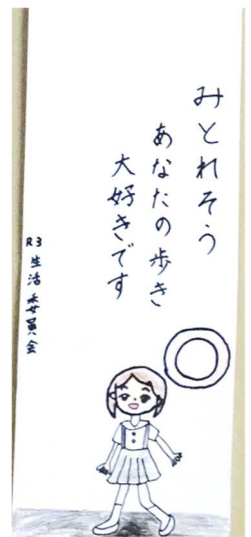 みとれそう
あなたの歩き
大好きです
R3 生活委員会